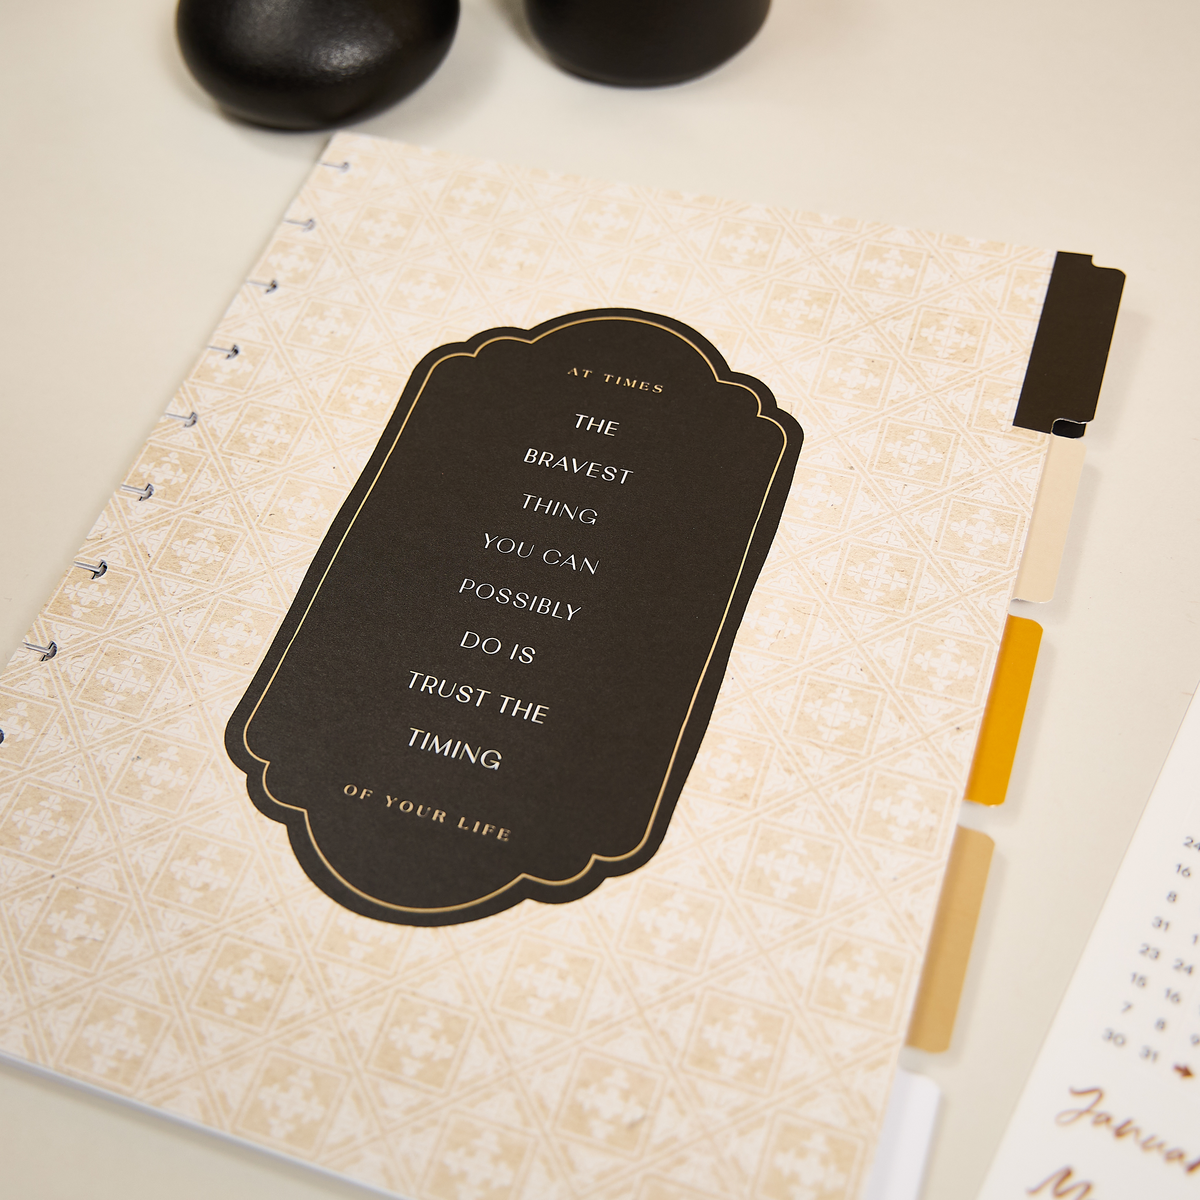 AT TIMES
THE
BRAVEST
THING
YOU CAN
POSSIBLY
DO IS
TRUST THE
TIMING
OF YOUR LIFE
24
16
8
31 1
23 24
15 16
7 8 9
30 31